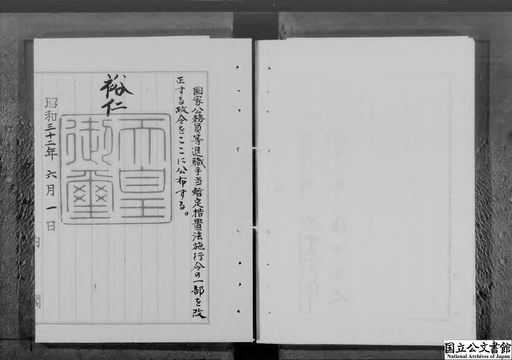 国家公務員等退職手当暫定措置法施行令の一部を改
正する政令をここに公布する。
裕仁
天皇
御璽
昭和三十二年六月一日
国立公文書館
National Archives of Japan